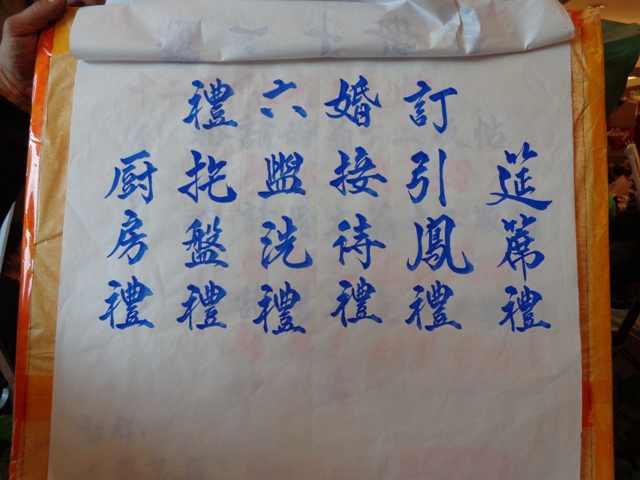 訂婚六禮
筵蓆禮
引鳳禮
接待禮
盥洗禮
托盤禮
厨房禮